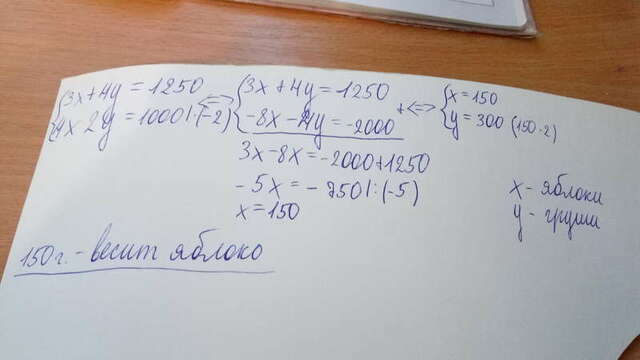 3x+4y=1250 <=> 3x+4y=1250 + <=> x=150
4x 2y=1000|·(-2) -8x-4y=-2000 y=300 (150·2)
3x-8x=-2000+1250
-5x=-750|:(-5)
x=150
x- яблоки
y- груши
150г.-весит яблоко